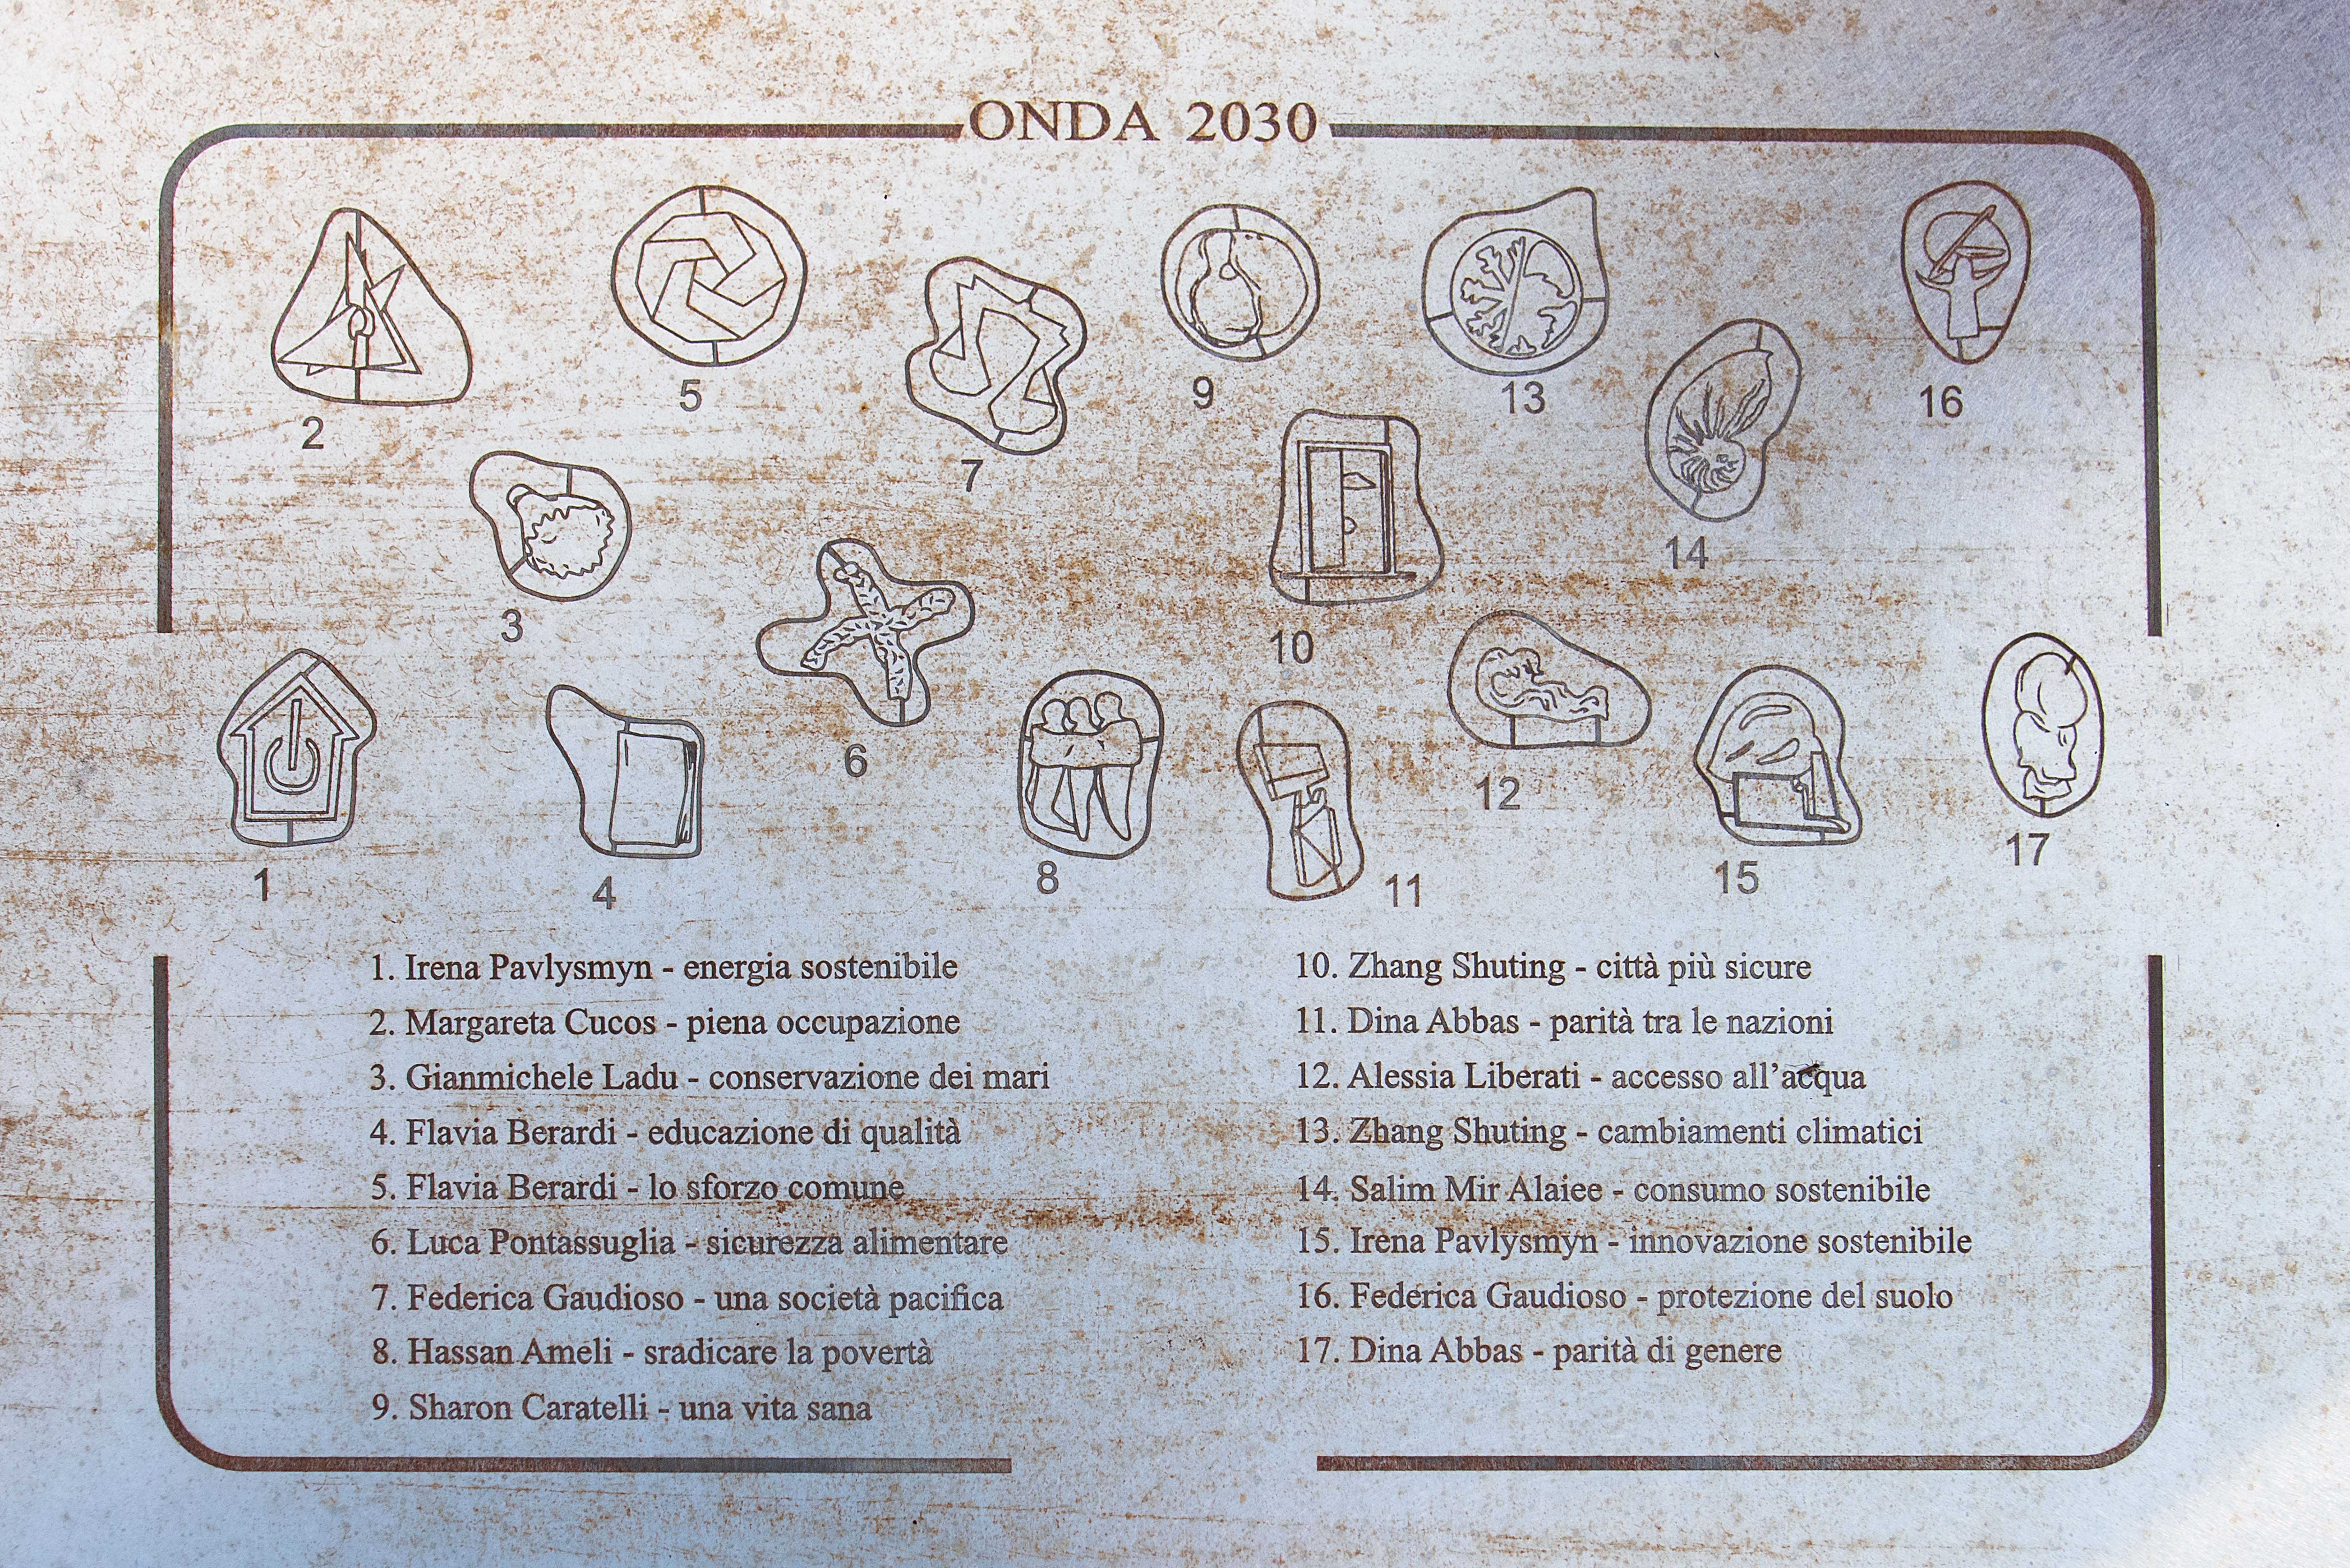 ONDA 2030
2
5
7
9
13
14
16
3
6
10
1
4
8
11
12
15
17
1. Irena Pavlysmyn - energia sostenibile
2. Margareta Cucos - piena occupazione
3. Gianmichele Ladu - conservazione dei mari
4. Flavia Berardi - educazione di qualità
5. Flavia Berardi - lo sforzo comune
6. Luca Pontassuglia - sicurezza alimentare
7. Federica Gaudioso - una società pacifica
8. Hassan Ameli - sradicare la povertà
9. Sharon Caratelli - una vita sana
10. Zhang Shuting - città più sicure
11. Dina Abbas - parità tra le nazioni
12. Alessia Liberati - accesso all'acqua
13. Zhang Shuting - cambiamenti climatici
14. Salim Mir Alaiee - consumo sostenibile
15. Irena Pavlysmyn - innovazione sostenibile
16. Federica Gaudioso - protezione del suolo
17. Dina Abbas - parità di genere